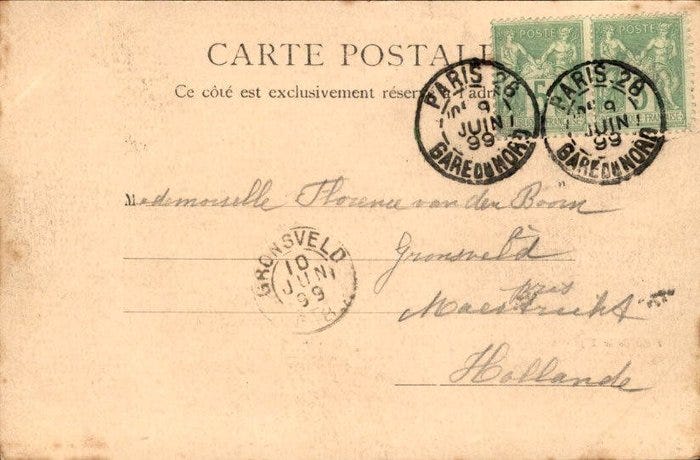 CARTE POSTALE
Ce côté est exclusivement réservé à l'adr
POSTE
POSTE
PARIS 28
9
JUIN
99
GARE DU NORD
PARIS 28
9
JUIN
99
GARE DU NORD
Mademoiselle Florence van den Boorn
GRONSVELD
10
JUNI
99
Gronsveld
près
Maestricht
Hollande